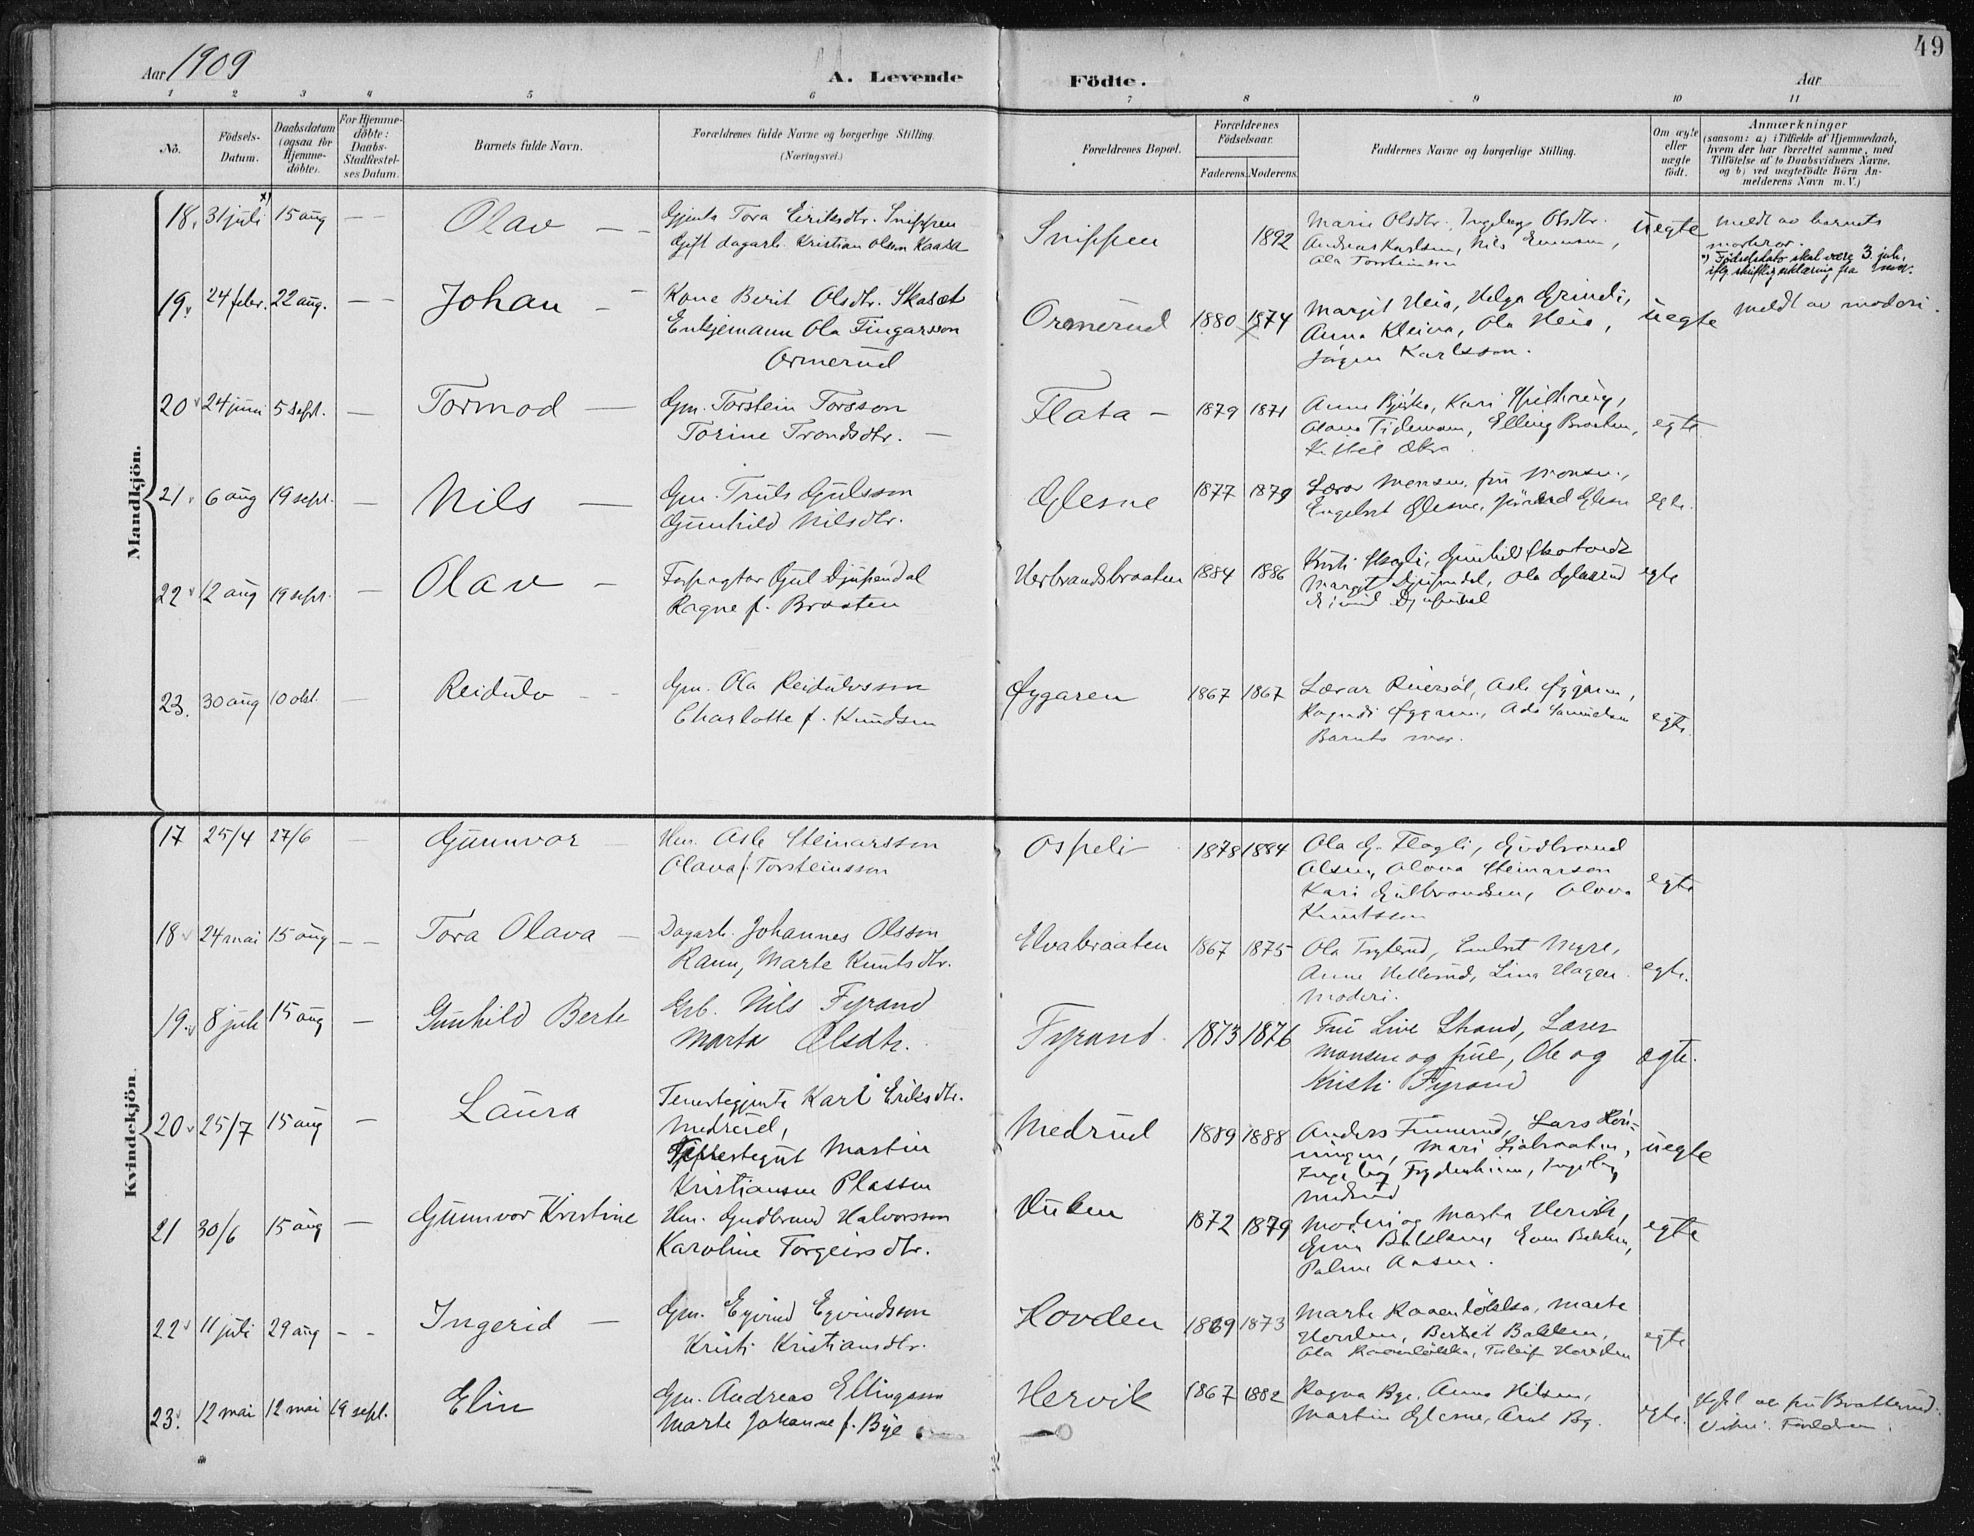 Aar 1909
A. Levende
Födte.
Aar
49
1 2 3 4 5 6 7 8 9 10 11
No.
Födsels-Datum.
Daabsdatum (ogsaa for Hjemme-döbte).
For Hjemme-döbte: Daabs-Stadfæstel-ses Datum.
Barnets fulde Navn.
Forældrenes fulde Navne og borgerlige Stilling.
(Næringsvei.)
Forældrenes Bopæl.
Forældrenes Födselsaar.
Faderens. Moderens.
Faddernes Navne og borgerlige Stilling.
Om ægte eller uægte födt.
Anmærkninger
(saasom: a) i Tilfælde af Hjemmedaab,
hvem der har forrettet samme, med
Tilföielse af to Daabsvidners Navne,
og b) ved uægtefödte Börn An-
melderens Navn m. V.)
Mandkjön.
18. 31 juli x) 15 aug — — Olav — — Gjente Tora Eiriksdtr. Snippen
Gift dagarb. Kristian Olsen Kaasa
Snippen 1892 Marie Olsdtr. Ingeborg Olsdtr.
Andreas Karlsen, Nils Evensen,
Ola Torsteinsen
uegte
meldt av barnets
morfar.
x) Födselsdato skal være 3. juli,
iflg. skriftlig erklæring fra
19. 24 febr. 22 aug. — — Johan — Kone Berit Olsdtr. Skaset
Enkjemann Ola Fingarsson
Ormerud
Ormerud 1880 1874 Margit Heia, Helga Grindi,
Anna Kleiva, Ola Heia,
Jörgen Karlsson.
uegte meldt av moderi.
20 24 juni 5 sept. — Tormod — Gm. Torstein Torsson
Torine Trondsdtr. —
Flata — 1879 1871 Anne Björke, Kari
Tidemann, Elling Braaten,
Kittil
egte
21. 6 aug 19 sept. — Nils — Gm. Truls Gulsson
Gunhild Nilsdtr.
Glesne 1877 1879 Lærar Monsen, fru Monsen,
Engebret Glesne, Glesne
egte.
22 12 aug 19 sept. — Olav — Forpagtar Gul Djupendal
Ragne f. Braaten
Herbrandsbraaten 1884 1886 Kristi Skagli, Gunhild
Margit Djupendal, Ola
Eivind Djupendal
egte
23. 30 aug 10 okt. — Reidulv — — Gm. Ola Reidulvsson
Charlotte f. Knudsen
Øygaren 1867 1867 Lærar Asle Øygaren,
Ragndi Øygaren, Ada Samuelsen
Barnets mor.
egte.
Kvindekjön.
17 25/4 27/6 — Gunnvor — Hm. Asle Steinarsson
Olava f. Torsteinsson
Ospeli 1878 1884 Ola G. Flagli, Gudbrand
Olsen, Olava Steinarson
Kari Gulbrandsen, Olava
Knutsson
egte
18 24 mai 15 aug — — Tora Olava — Dagarb. Johannes Olsson
Rann, Marte Knutsdtr.
Elvabraaten 1867 1875 Ola, Embret Myre,
Anne Hellerud, Lina Hagen.
Moderi.
egte.
19. 8 juli 15 aug — Gunhild Berte Grb. Nils Fyrand
Marta Olsdtr.
Fyrand. 1873 1876 Fru Live Strand, Lærer
Monsen og frue, Ole og
Kristi Fyrand
ægte.
20 25/7 15 aug — Laura Tenestegjente Kari Eriksdtr.
Medrud,
Tenestegut Martin
Kristiansen Plassen
Medrud 1889 1888 Anders Finnerud, Lars Hön-
ningen, Mari
Ingeborg Frydenheim, Ingeborg
Medrud
uegte
21 30/6 15 aug — Gunnvor Kristine Hm. Gudbrand Halvorsson
Karoline Torgeirsdtr.
1872 1879 Moderi og Marta Hervik,
Even Bakken,
Palma Aasen.
egte
22 11 juli 29 aug — — Ingerid — Gm. Eyvind Eyvindsson
Kristi Kristiansdtr.
Hovden 1869 1873 Marte Raaenlökka, Marte
Hovden, Berhit Bakken,
Ola Raaenlökka, Tuleif Hovden
egte
23. 12 mai 12 mai 19 sept. Elin Gm. Andreas Ellingsen
Marte Johanne f. Bye
Hervik 1867 1882 Ragna Bye, Anna Nilsen,
Martin Glesne, Arnt By.
egte. av fru Bratterud.
Vitni: Foreldren.